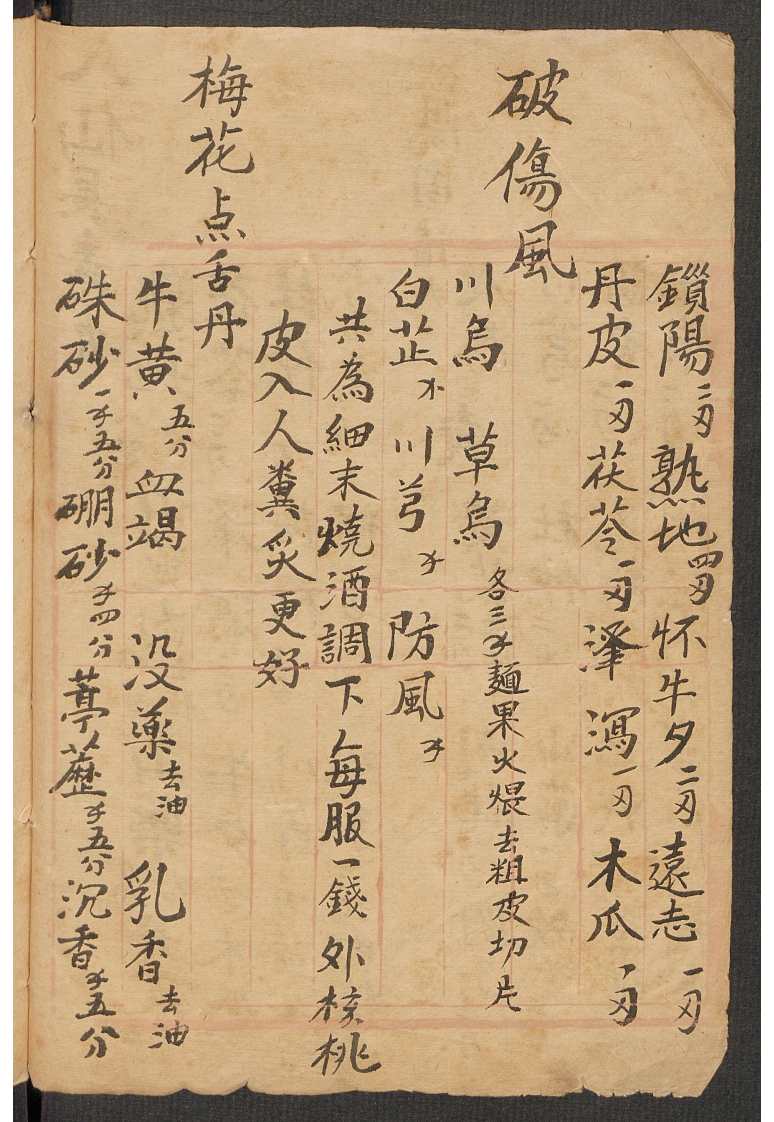 鎖陽二刃熟地四刃怀牛夕二刃遠志一刃
丹皮一刃茯苓一刃澤瀉一刃木瓜一刃
破傷風
川烏 草烏 各三才麺果火煨去粗皮切片
白芷才川芎才防風才
共為細末燒酒調下每服一錢外核桃
皮入人糞炙更好
梅花点舌丹
牛黃五分血竭 沒藥去油 乳香去油
硃砂一才五分硼砂才四分葶藶才五分沉香才五分